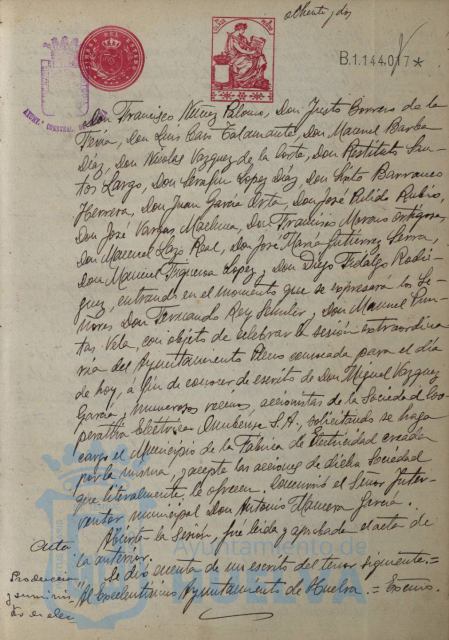 ochenta y dos
B.1.144.017*
AYUNT.º CONSTNAL. DE
Don Francisco Núñez Palomo, Don Justo Borrero de la
Feria, Don Luis Can Talamante, Don Manuel Barba
Díaz, Don Nicolás Vázquez de la Corte, Don Restituto San-
tos Largo, Don Serafín López Díaz, Don Sixto Barranco
Herrera, Don Juan García Orta, Don José Pulido Rubio,
Don José Vargas Machuca, Don Francisco Moreno Ortigosa,
Don Manuel Lazo Real, Don José María Gutiérrez Serra,
Don Manuel Figueroa López y Don Diego Fidalgo Rodrí-
guez, entrando en el momento que se expresara los Se-
ñores Don Fernando Rey Schuler y Don Manuel Pun-
tas Vela, con objeto de celebrar la sesión extraordina
ria del Ayuntamiento Pleno convocada para el día
de hoy, a fin de conocer de escrito de Don Miguel Vazquez
García y numerosos vecinos, accionistas de la Sociedad Coo
perativa Eléctrica Onubense S.A., solicitando se haga
cargo el Municipio de la Fabrica de Electricidad creada
por la misma, y acepte las acciones de dicha Sociedad
que literalmente le ofrecen. Concurrió el Señor Inter-
ventor municipal Don Antonio Mancera García.
Abierta la sesión, fué leida y aprobada el acta de
Acta
la anterior.
Se dió cuenta de un escrito del tenor siguiente. =
Producción
y suminis-
tro de elec
Al Excelentísimo Ayuntamiento de Huelva. = Excmo.
Ayuntamiento de
HUELVA